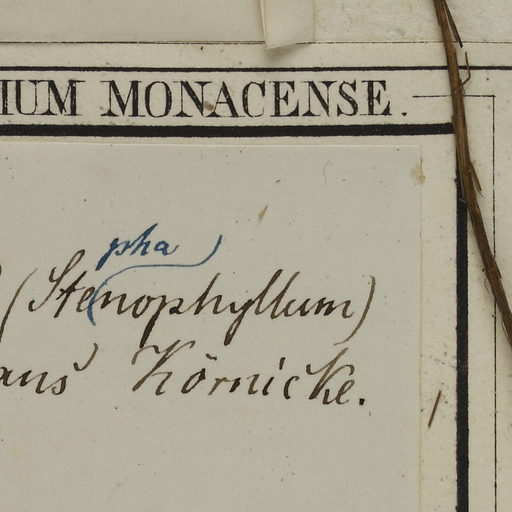 IUM MONACENSE.
pha
(Stenophyllum)
ans Körnicke.